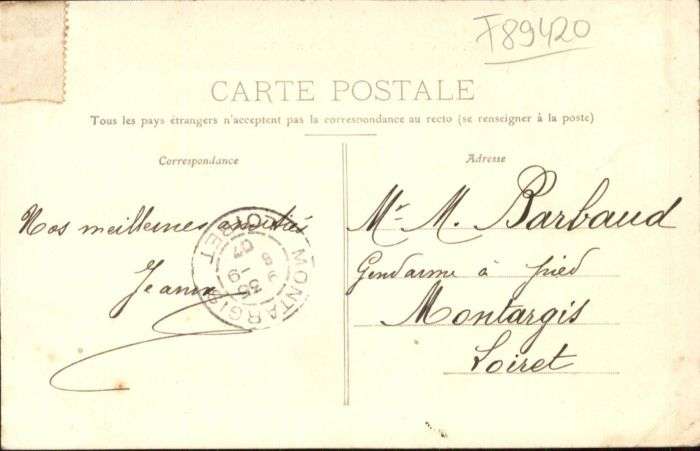 F89420
CARTE POSTALE
Tous les pays étrangers n'acceptent pas la correspondance au recto (se renseigner à la poste)
Correspondance
Nos meilleures amitiés
Adresse
Mr. M. Barbaud
Gendarme à pied
Montargis
Loiret
MONTARGIS
LOIRET
07